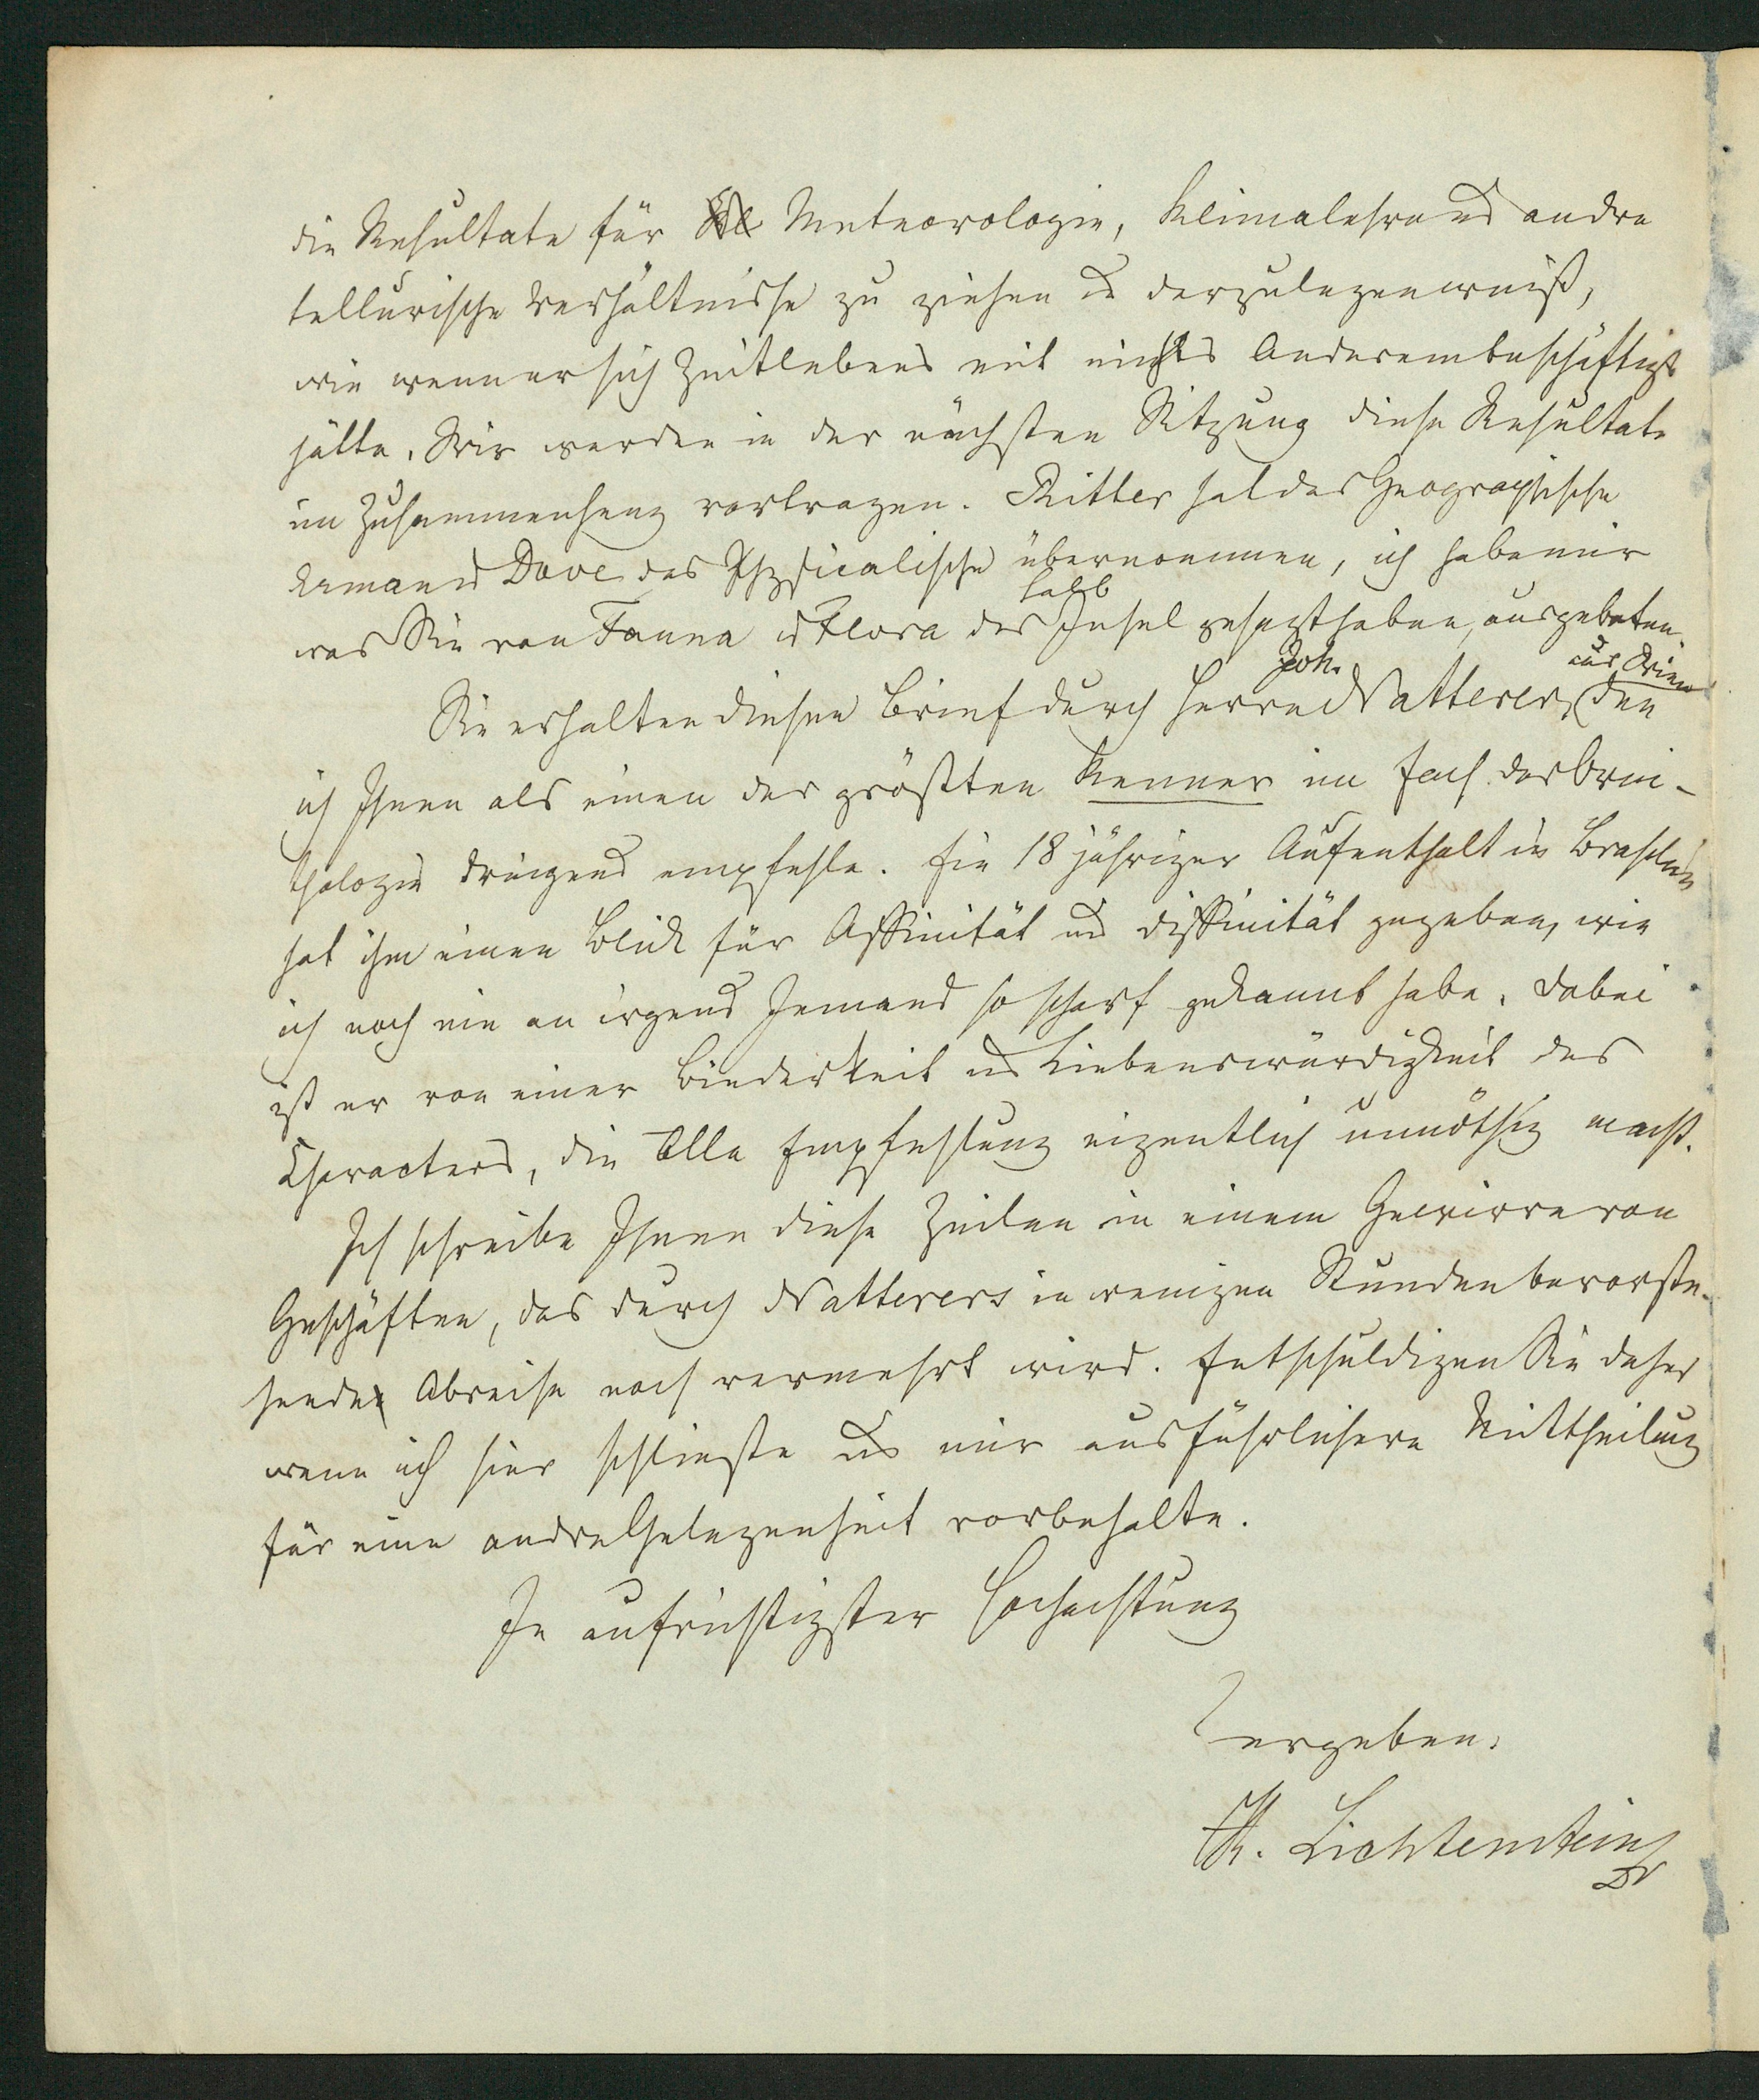 die Resultate für Meteorologie, Klimalehre und andre
tellurische Verhältnisse zu ziehen u darzulegen weiß,
wie wenn er sich Zeitlebens mit nichts Anderem beschäftigt
hätte. Wir werden in der nächsten Sitzung diese Resultate
im Zusammenhang vortragen. Ritter hat das Geographische
Erman u Dove das Physicalische übernommen, ich habe mir
was Sie von Fauna u Flora der Halb Insel gesagt haben, ausgebeten.
Sie erhalten diesen Brief durch Herrn Joh. Natterer aus Wien, den
ich Ihnen als einen der größten Kenner im Fach der Orni-
thologie dringend empfehle. Ein 18 jähriger Aufenthalt in Brasilien
hat ihm einen Blick für Affinität und Diffinität gegeben, wie
ich noch nie an irgend Jemand so scharf gekannt habe. Dabei
ist er von einer Biederkeit und Liebenswürdigkeit des
Characters, die Alle Empfehlung eigentlich unnöthig macht.
Ich schreibe Ihnen diese Zeilen in einem Gewirre von
Geschäften, das durch Natterers in wenigen Stunden bevorste-
hende Abreise noch vermehrt wird. Entschuldigen Sie daher
wenn ich hier schließe und mir ausführlichere Mittheilung
für eine andre Gelegenheit vorbehalte.
In aufrichtigster Hochachtung
ergeben.
H. Lichtenstein
Dr